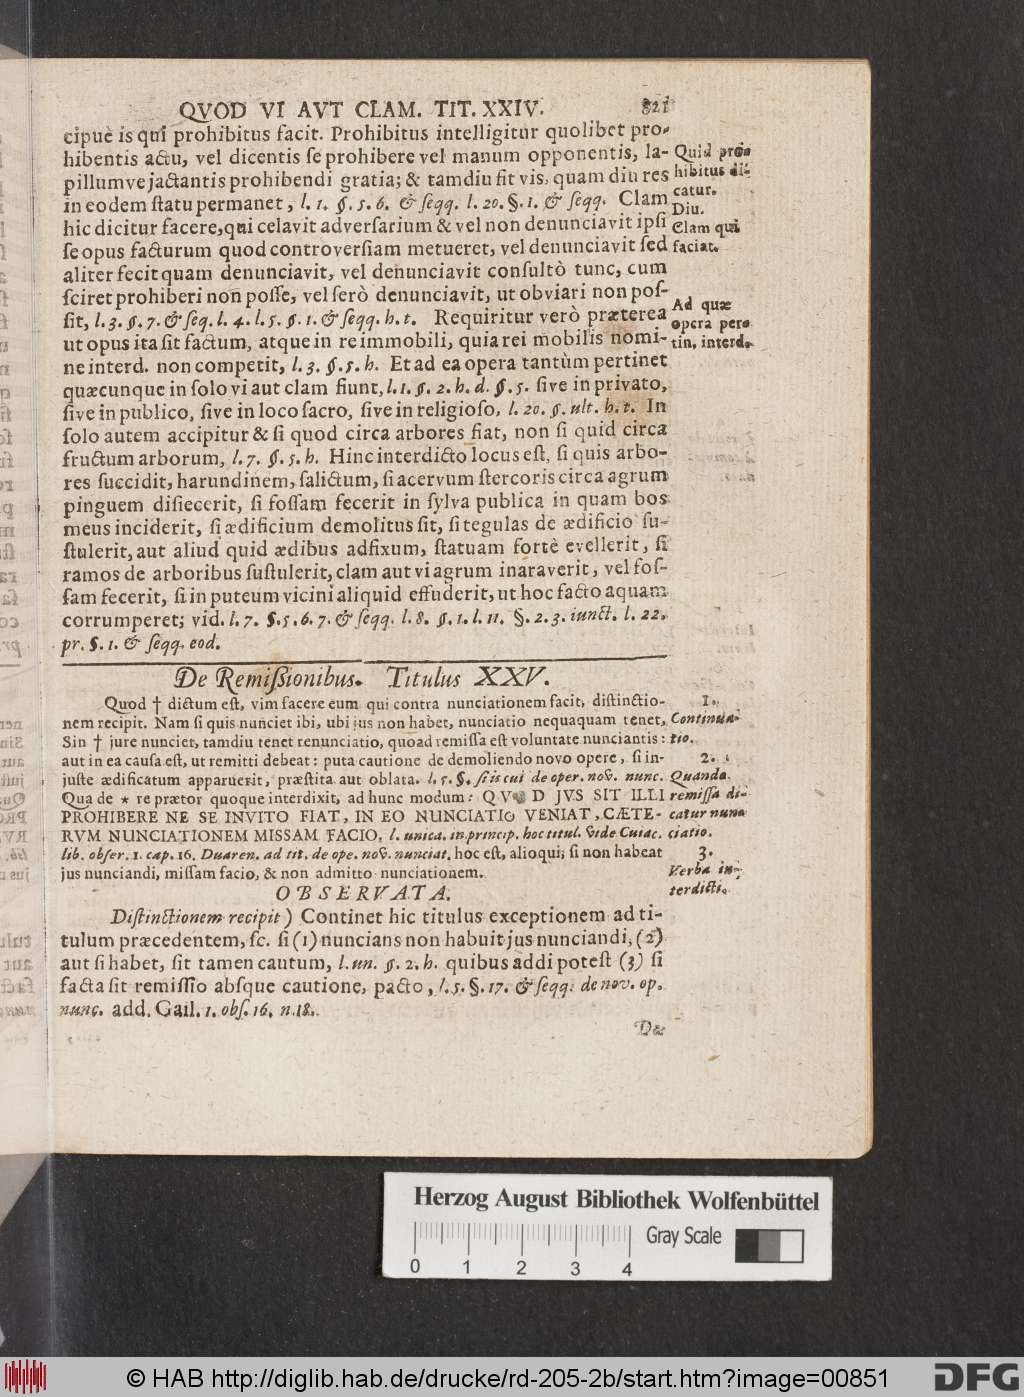 QVOD VI AVT CLAM. TIT. XXIV. 821
cipuè is qui prohibitus facit. Prohibitus intelligitur quolibet pro-
hibentis actu, vel dicentis ſe prohibere vel manum opponentis, la-
pillumve jactantis prohibendi gratia; & tamdiu fit vis, quam diu res
in eodem ſtatu permanet, l. 1. §. 5. 6. & ſeqq. l. 20. §. 1. & ſeqq. Clam
hic dicitur facere, qui celavit adverſarium & vel non denunciavit ipſi
ſe opus facturum quod controverſiam metueret, vel denunciavit ſed
aliter fecit quam denunciavit, vel denunciavit conſultò tunc, cum
ſciret prohiberi non poſſe, vel ſerò denunciavit, ut obviari non poſ-
ſit, l. 3. §. 7. & ſeq. l. 4. l. 5. §. 1. & ſeqq. h. t. Requiritur verò præterea
ut opus ita ſit factum, atque in re immobili, quia rei mobilis nomi-
ne interd. non competit, l. 3. §. 5. h. Et ad ea opera tantùm pertinet
quæcunque in ſolo vi aut clam fiunt, l. 1. §. 2. h. d. §. 5. ſive in privato,
ſive in publico, ſive in loco ſacro, ſive in religioſo, l. 20. §. ult. h. t. In
ſolo autem accipitur & ſi quod circa arbores fiat, non ſi quid circa
fructum arborum, l. 7. §. 5. h. Hinc interdicto locus eſt, ſi quis arbo-
res ſuccidit, harundinem, ſalictum, ſi acervum ſtercoris circa agrum
pinguem disiecerit, ſi foſſam fecerit in ſylva publica in quam bos
meus inciderit, ſi ædificium demolitus ſit, ſi tegulas de ædificio ſu-
ſtulerit, aut aliud quid ædibus adfixum, ſtatuam fortè evellerit, ſi
ramos de arboribus ſuſtulerit, clam aut vi agrum inaraverit, vel foſ-
ſam fecerit, ſi in puteum vicini aliquid effuderit, ut hoc facto aquam
corrumperet; vid. l. 7. §. 5. 6. 7. & ſeqq. l. 8. §. 1. l. 11. §. 2. 3. iunct. l. 22.
pr. §. 1. & ſeqq. eod.
Quid pro-
hibitus di-
catur.
Diu.
Clam qui
faciat.
Ad quæ
opera per-
tin. interd.
De Remiſsionibus. Titulus XXV.
Quod † dictum eſt, vim facere eum qui contra nunciationem facit, diſtinctio-
nem recipit. Nam ſi quis nunciet ibi, ubi jus non habet, nunciatio nequaquam tenet,
Sin † jure nunciet, tamdiu tenet renunciatio, quoad remiſſa eſt voluntate nunciantis:
aut in ea cauſa eſt, ut remitti debeat: puta cautione de demoliendo novo opere, ſi in-
juſte ædificatum apparuerit, præſtita aut oblata. l. 5. §. ſi is cui de oper. nov. nunc.
Qua de * re prætor quoque interdixit, ad hunc modum: QVOD JVS SIT ILLI
PROHIBERE NE SE INVITO FIAT, IN EO NUNCIATIO VENIAT, CÆTE-
RVM NUNCIATIONEM MISSAM FACIO, l. unica. in princip. hoc titul. vide Cuiac.
lib. obſer. 1. cap. 16. Duaren. ad tit. de ope. nov. nunciat. hoc eſt, alioqui, ſi non habeat
jus nunciandi, miſſam facio, & non admitto nunciationem.
1.
Continua-
tio.
2.
Quando
remiſſa di-
catur nun-
ciatio.
3.
Verba in-
terdicti.
OBSERVATA.
Diſtinctionem recipit) Continet hic titulus exceptionem ad ti-
tulum præcedentem, ſc. ſi (1) nuncians non habuit jus nunciandi, (2)
aut ſi habet, ſit tamen cautum, l. un. §. 2. h. quibus addi poteſt (3) ſi
facta ſit remiſſio abſque cautione, pacto, l. 5. §. 17. & ſeqq. de nov. op.
nunc. add. Gail. 1. obſ. 16. n. 18.
De
Herzog August Bibliothek Wolfenbüttel
Gray Scale
0 1 2 3 4
© HAB http://diglib.hab.de/drucke/rd-205-2b/start.htm?image=00851
DFG